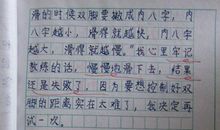 滑的时候双脚要撇成内八字，内
八字越小，滑得就越快，内八字
越大，滑得就越慢。”我心里牢记
教练的话，慢慢地滑下去，结果
还是失败了，因为要想控制好双
脚的距离实在太难了，我决定再
试一次。